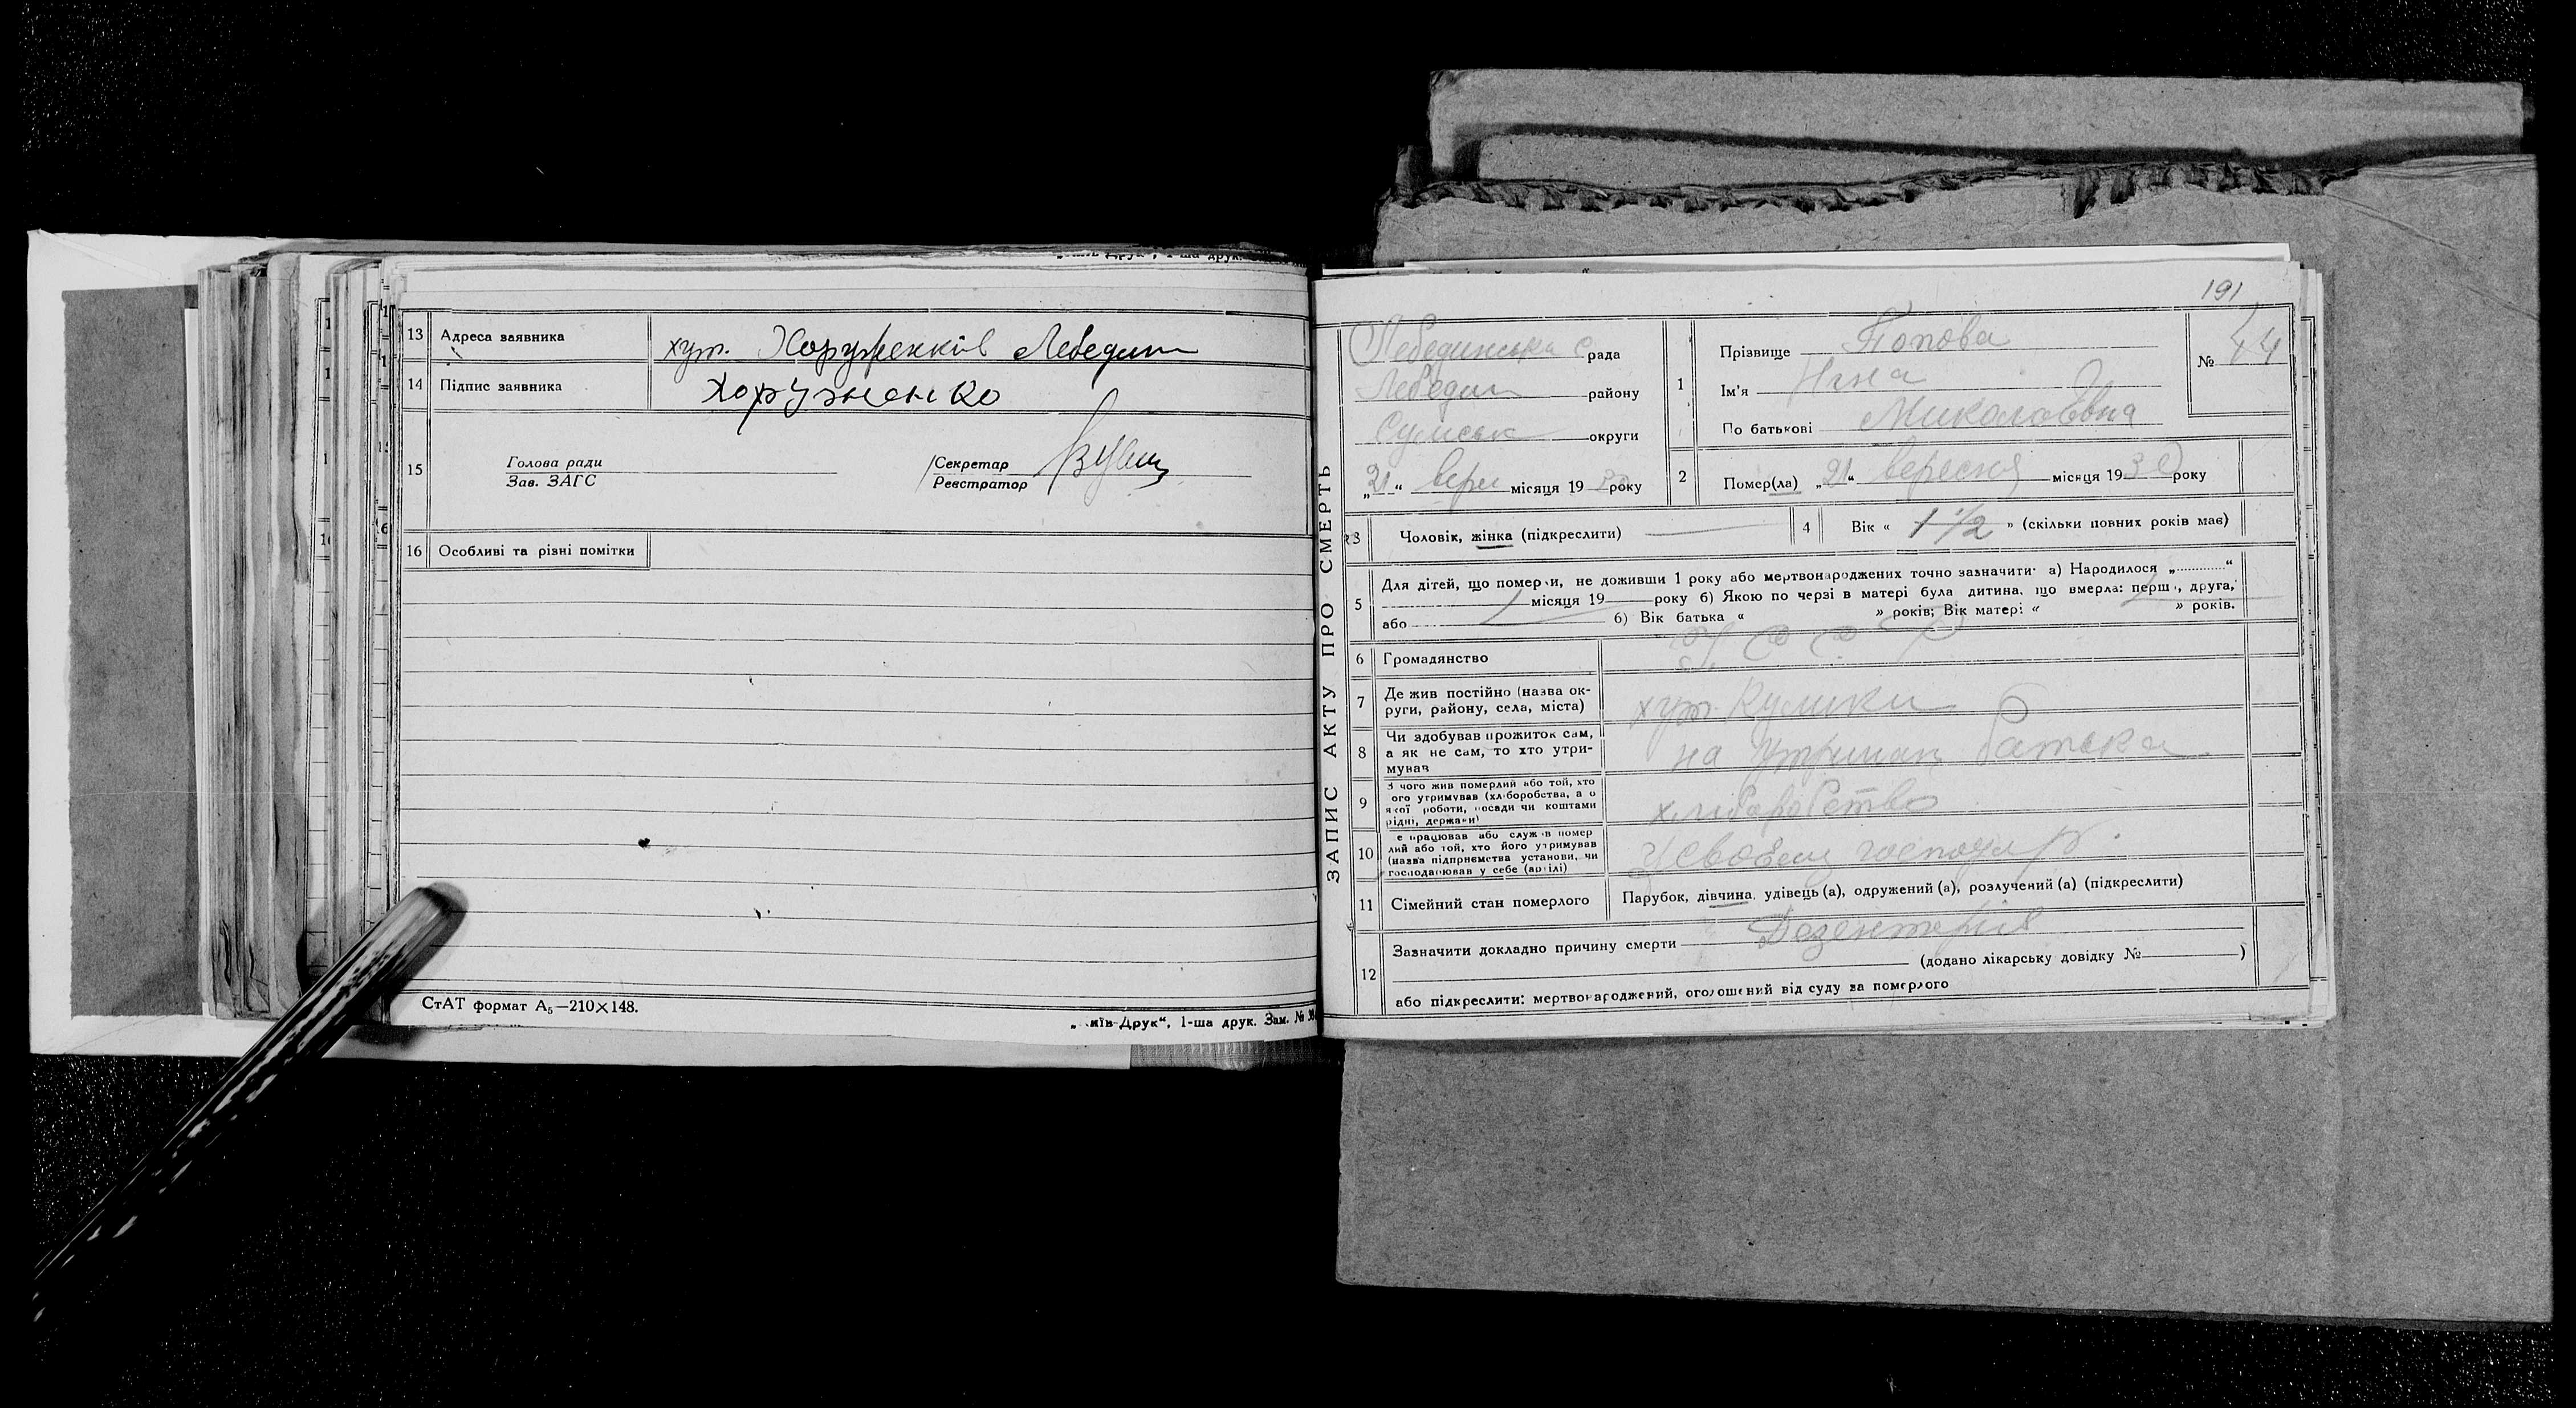 13 Адреса заявника хут. Хоруженків Лебедин
14 Підпис заявника Хоруженко
15 Голова ради
Зав. ЗАГС
Секретар
Реєстратор
16 Особливі та різні помітки
СтАТ формат А₅—210×148.
"Друк“, 1-ша друк. Зам. №
191
ЗАПИС АКТУ ПРО СМЕРТЬ
Лебединська С рада
Лебедин району
Сумськ округи
„21“ верес місяця 19 30 року
1 Прізвище Попова
Ім'я Ніна
По батькові Миколаївна
№ 44
2 Помер(ла) „21“ вересня місяця 1930 року
3 Чоловік, жінка (підкреслити)
4 Вік « 1 1/2 » (скільки повних років має)
5 Для дітей, що померли, не доживши 1 року або мертвонароджених точно зазначити: а) Народилося „............“
місяця 19 року б) Якою по черзі в матері була дитина, що вмерла: перша, друга,
або б) Вік батька « » років; Вік матері « » років.
6 Громадянство У.С.С.Р
7 Де жив постійно (назва ок-
руги, району, села, міста) хут. Кулики
8 Чи здобував прожиток сам,
а як не сам, то хто утри-
мував на утриман батька
9 З чого жив померлий або той, хто
його утримував (хліборобства, а о
якої роботи, посади чи коштами
рідні, держави) хліборобство
10 е працював або служив помер
лий або той, хто його утримував
(назва підприємства установи, чи
господарював у себе (артілі) у своєму господ
11 Сімейний стан померлого Парубок, дівчина, удівець (а), одружений (а), розлучений (а) (підкреслити)
12 Зазначити докладно причину смерти Дезентерія
(додано лікарську довідку № )
або підкреслити: мертвонароджений, оголошений від суду за померлого